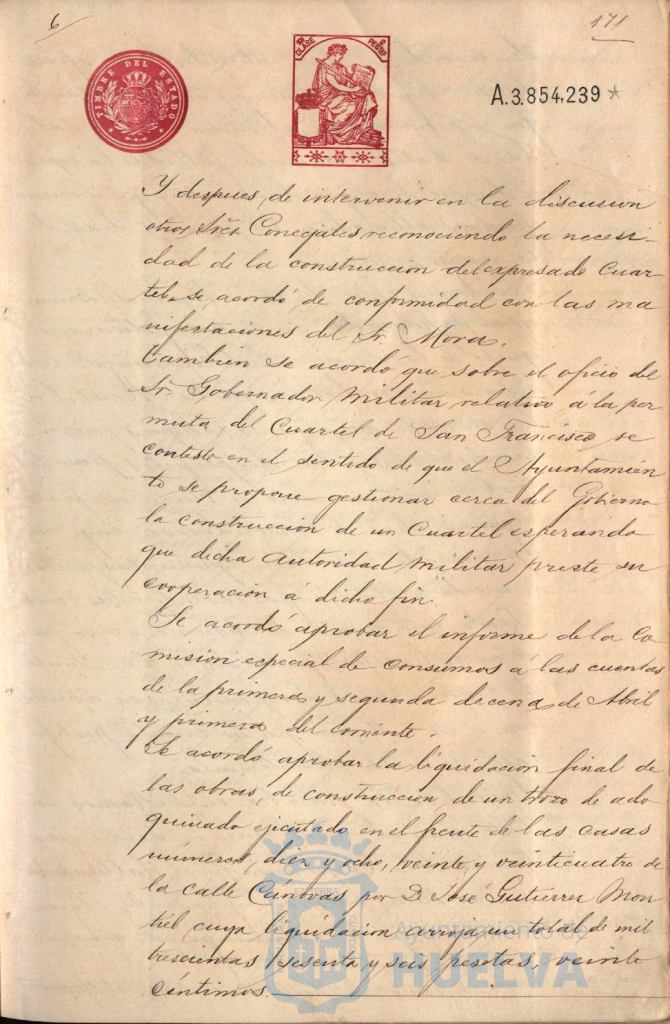 6
171
TIMBRE DEL ESTADO
10ª CLASE
2 PESETAS
A.3.854,239 *
Y despues de intervenir en la discusion
otros Sres Concejales reconociendo la necesi-
dad de la construccion del expresado Cuar-
tel, se acordó de conformidad con las ma
nifestaciones del Sr. Mora.
Tambien se acordó que sobre el oficio de
Sr. Gobernador Militar relativo á la per
muta del Cuartel de San Francisco, se
conteste en el sentido de que el Ayuntamien
to se propone gestionar cerca del Gobierno
la construccion de un Cuartel esperando
que dicha autoridad militar preste su
cooperacion á dicho fin.
Se acordó aprobar el informe de la Co
mision especial de Consumos á las cuentas
de la primera y segunda decena de Abril
y primera del corriente.
Se acordó aprobar la liquidacion final de
las obras de construccion de un trozo de ado
quinado ejecutado en el frente de las casas
números, diez y ocho, veinte y veinticuatro de
la calle Cánovas por D. José Gutierrez Mon
tiel cuya liquidacion arroja un total de mil
trescientas sesenta y seis pesetas, veinte
céntimos.
Ayuntamiento de
HUELVA